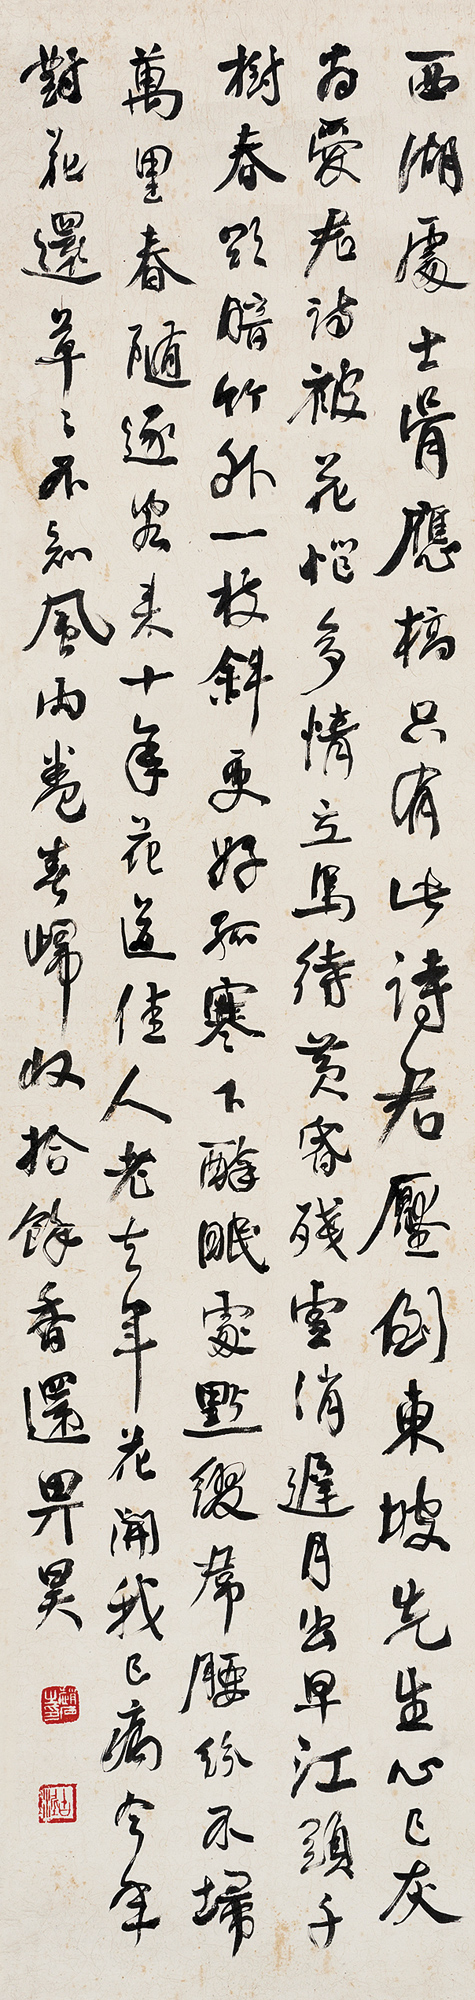 西湖處士骨應槁只有此詩君壓倒東坡先生心已灰
為愛君詩被花惱多情立馬待黃昏殘雪消遲月出早江頭千
樹春欲暗竹外一枝斜更好孤寒下醉眠處點綴裙腰紛不埽
萬里春隨逐客來十年花送佳人老去年花開我已病今年
對花還草〻不知風雨卷春歸收拾餘香還畀昊